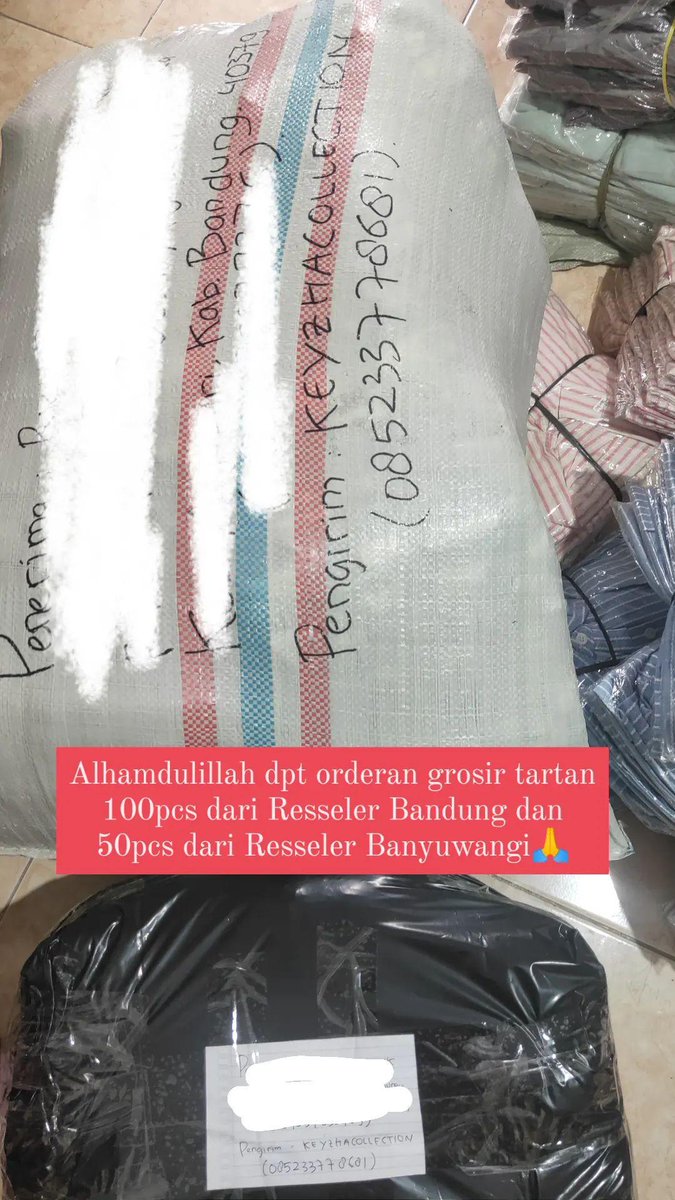 Penerima
Kab. Bandung 40379
Pengirim : KEYZHACOLLECTION
(085233778681).
Alhamdulillah dpt orderan grosir tartan
100pcs dari Resseler Bandung dan
50pcs dari Resseler Banyuwangi🙏
Pengirim : KEYZHACOLLECTION
(085233778681)